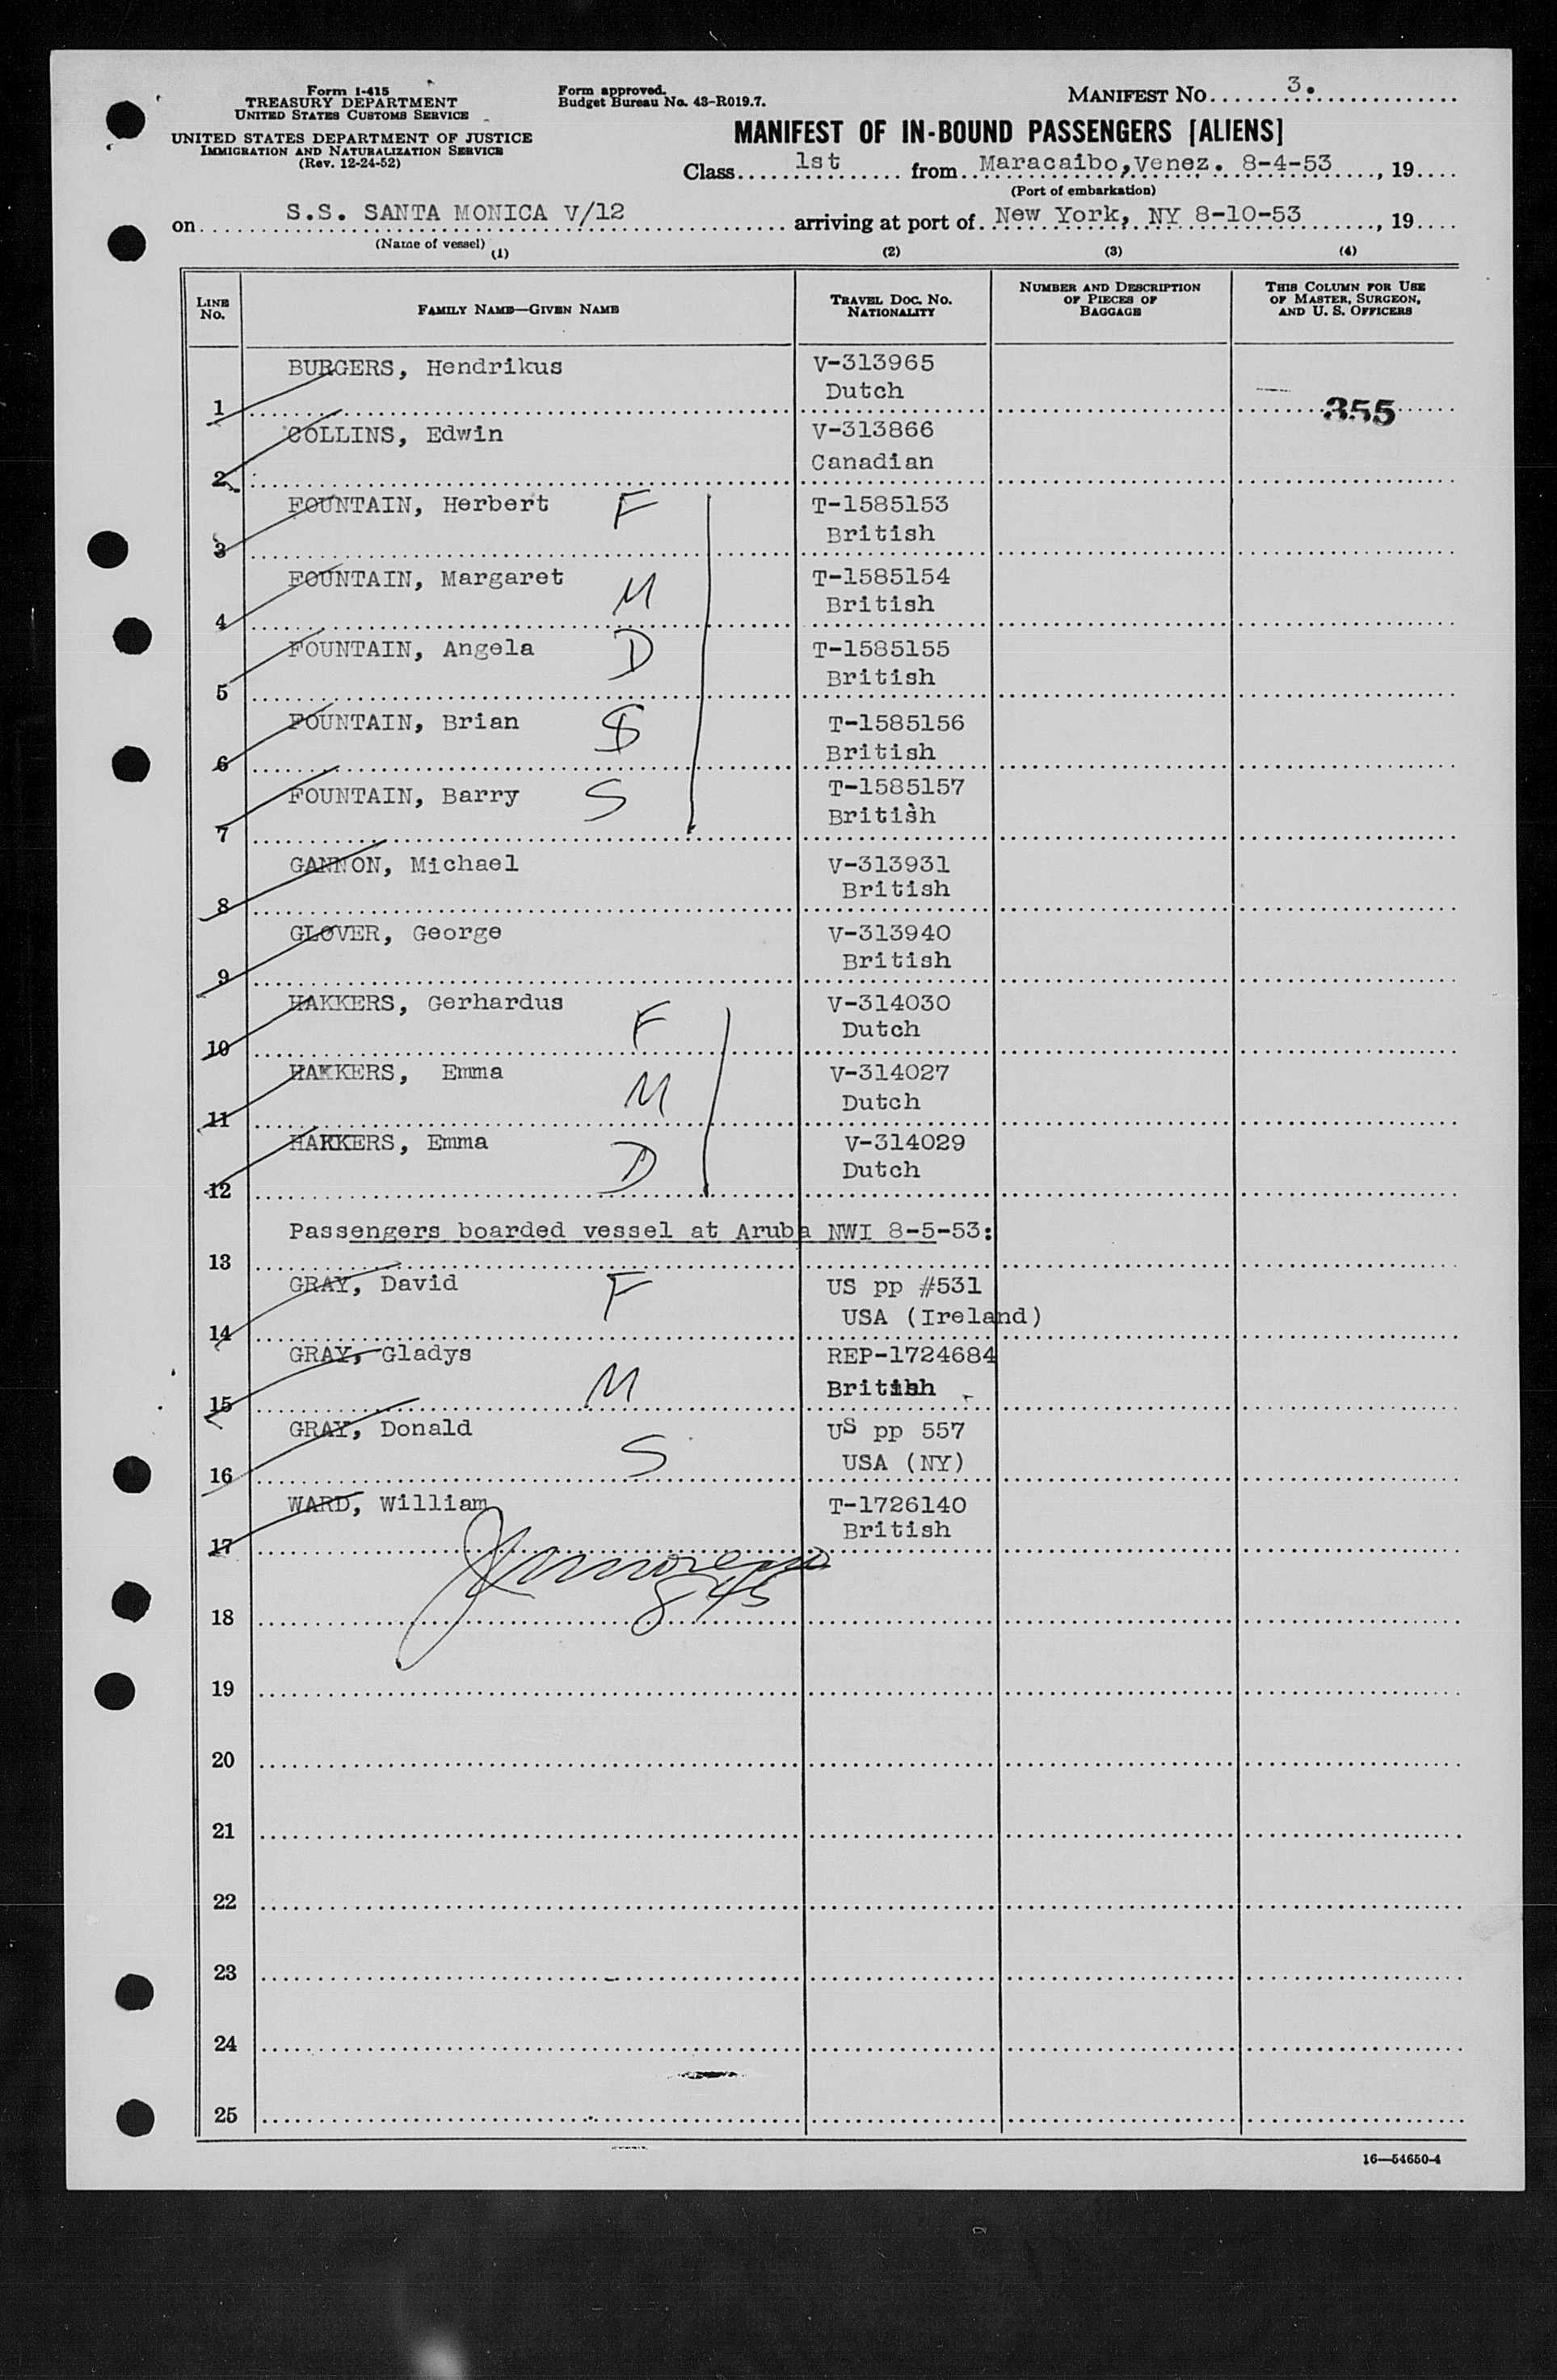 Form I-415
TREASURY DEPARTMENT
UNITED STATES CUSTOMS SERVICE
UNITED STATES DEPARTMENT OF JUSTICE
IMMIGRATION AND NATURALIZATION SERVICE
(Rev. 12-24-52)
Form approved.
Budget Bureau No. 43-R019.7.
MANIFEST NO. 3.
MANIFEST OF IN-BOUND PASSENGERS [ALIENS]
Class 1st from Maracaibo,Venez. 8-4-53, 19
(Port of embarkation)
on S.S. SANTA MONICA V/12 arriving at port of New York, NY 8-10-53, 19
(Name of vessel)
(1) (2) (3) (4)
LINE NO. FAMILY NAME—GIVEN NAME TRAVEL DOC. NO. NATIONALITY NUMBER AND DESCRIPTION OF PIECES OF BAGGAGE THIS COLUMN FOR USE OF MASTER, SURGEON, AND U. S. OFFICERS
BURGERS, Hendrikus V-313965
1 Dutch 355
COLLINS, Edwin V-313866
2 Canadian
FOUNTAIN, Herbert F T-1585153
3 British
FOUNTAIN, Margaret M T-1585154
4 British
FOUNTAIN, Angela D T-1585155
5 British
FOUNTAIN, Brian S T-1585156
6 British
FOUNTAIN, Barry S T-1585157
7 British
GANNON, Michael V-313931
8 British
GLOVER, George V-313940
9 British
HAKKERS, Gerhardus F V-314030
10 Dutch
HAKKERS, Emma M V-314027
11 Dutch
HAKKERS, Emma D V-314029
12 Dutch
Passengers boarded vessel at Aruba NWI 8-5-53:
13
GRAY, David F US pp #531
14 USA (Ireland)
GRAY, Gladys M REP-1724684
15 British
GRAY, Donald S US pp 557
16 USA (NY)
WARD, William T-1726140
17 British
845
18
19
20
21
22
23
24
25
16—54650-4